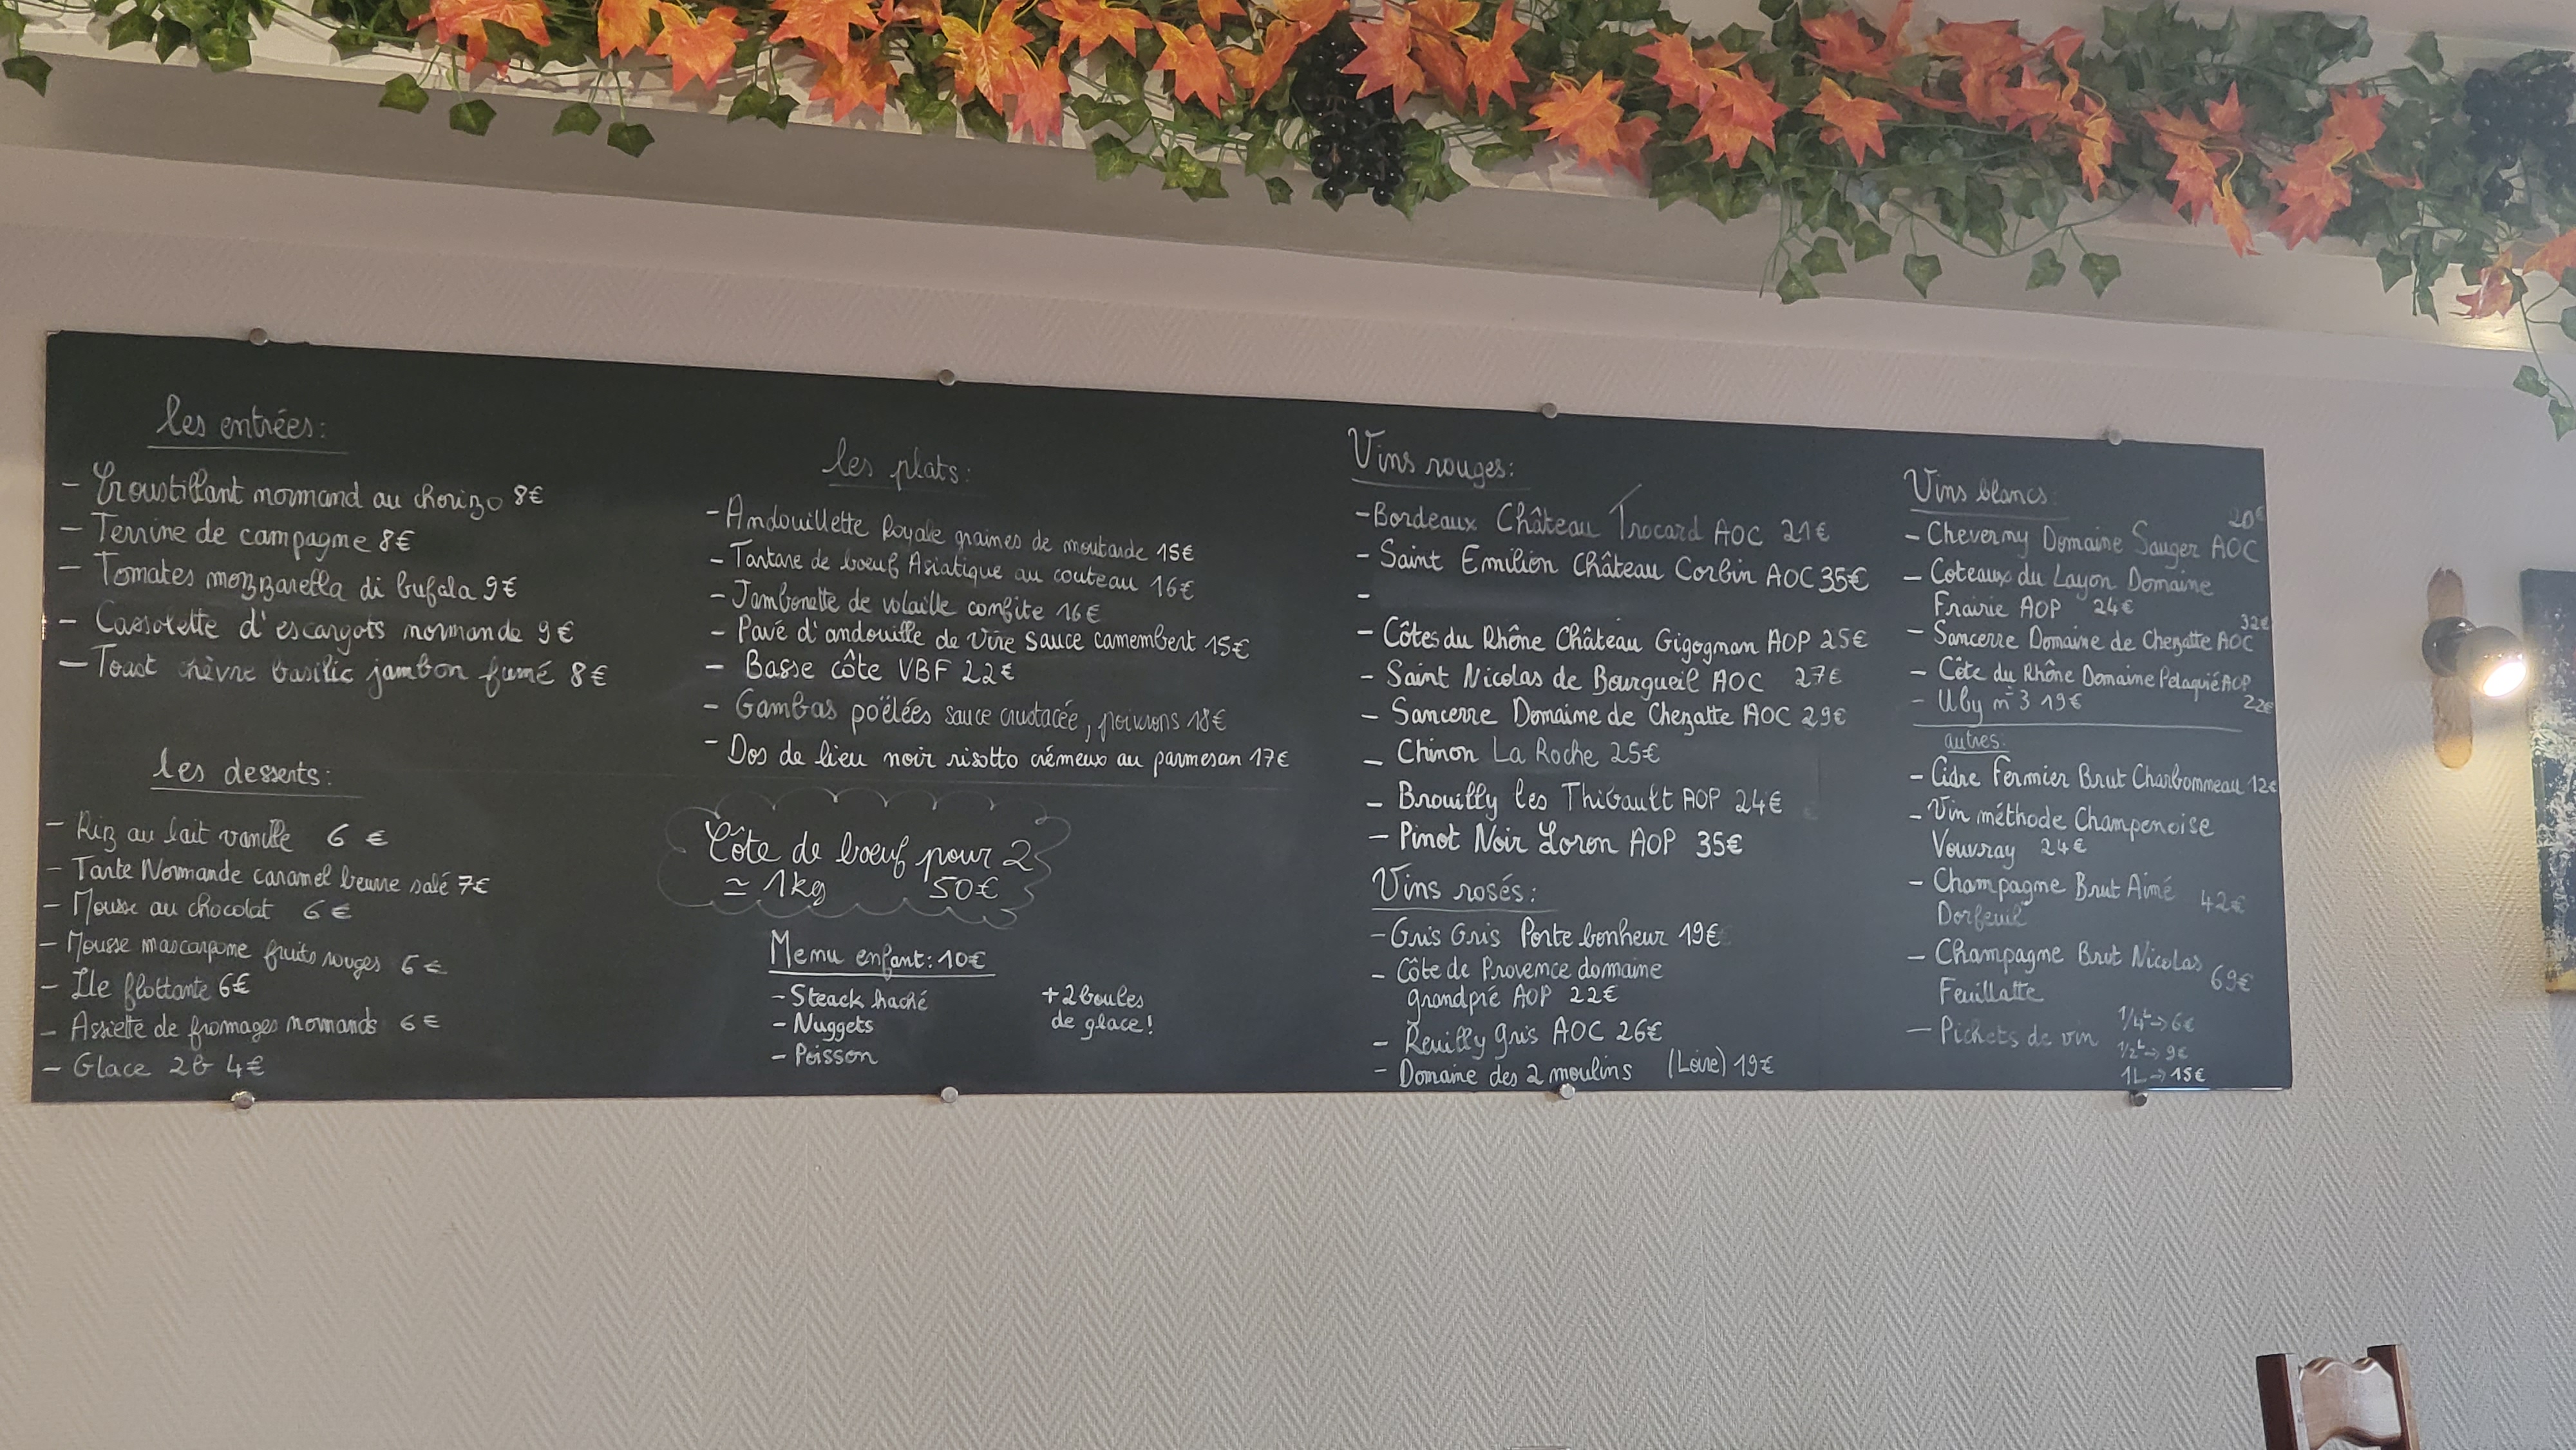 les entrées:
- Croustillant normand au chorizo 8€
- Terrine de campagne 8€
- Tomates mozzarella di bufala 9€
- Cassolette d'escargots normande 9€
- Toast chèvre basilic jambon fumé 8€
les desserts:
- Riz au lait vanille 6€
- Tarte Normande caramel beurre salé 7€
- Mousse au chocolat 6€
- Mousse mascarpone fruits rouges 6€
- Ile flottante 6€
- Assiette de fromages normands 6€
- Glace 2b 4€
les plats:
- Andouillette Royale graines de moutarde 15€
- Tartare de boeuf Asiatique au couteau 16€
- Jambonette de volaille confite 16€
- Pavé d'andouille de Vire sauce camembert 15€
- Basse côte VBF 22€
- Gambas poëlées sauce crustacée, poivrons 18€
- Dos de lieu noir risotto crémeux au parmesan 17€
Côte de boeuf pour 2
≃ 1kg 50€
Menu enfant: 10€
- Steack haché
- Nuggets
- Poisson
+ 2 boules
de glace!
Vins rouges:
- Bordeaux Château Trocard AOC 21€
- Saint Emilion Château Corbin AOC 35€
-
- Côtes du Rhône Château Gigognan AOP 25€
- Saint Nicolas de Bourgueil AOC 27€
- Sancerre Domaine de Chezatte AOC 29€
- Chinon La Roche 25€
- Brouilly les Thibault AOP 24€
- Pinot Noir Loron AOP 35€
Vins rosés:
- Gris Gris Porte bonheur 19€
- Côte de Provence domaine
grandpré AOP 22€
- Reuilly gris AOC 26€
- Domaine des 2 moulins (Loire) 19€
Vins blancs:
20€
- Cheverny Domaine Sauger AOC
- Coteaux du Layon Domaine
Frairie AOP 24€
32€
- Sancerre Domaine de Chezatte AOC
- Côte du Rhône Domaine Pelaquié AOP
22€
- Uby n°3 19€
autres:
- Cidre Fermier Brut Charbonneau 12€
- Vin méthode Champenoise
Vouvray 24€
- Champagne Brut Aimé 42€
Dorfeuil
- Champagne Brut Nicolas 69€
Feuillatte
- Pichets de vin 1/4L -> 6€
1/2L -> 9€
1L -> 15€